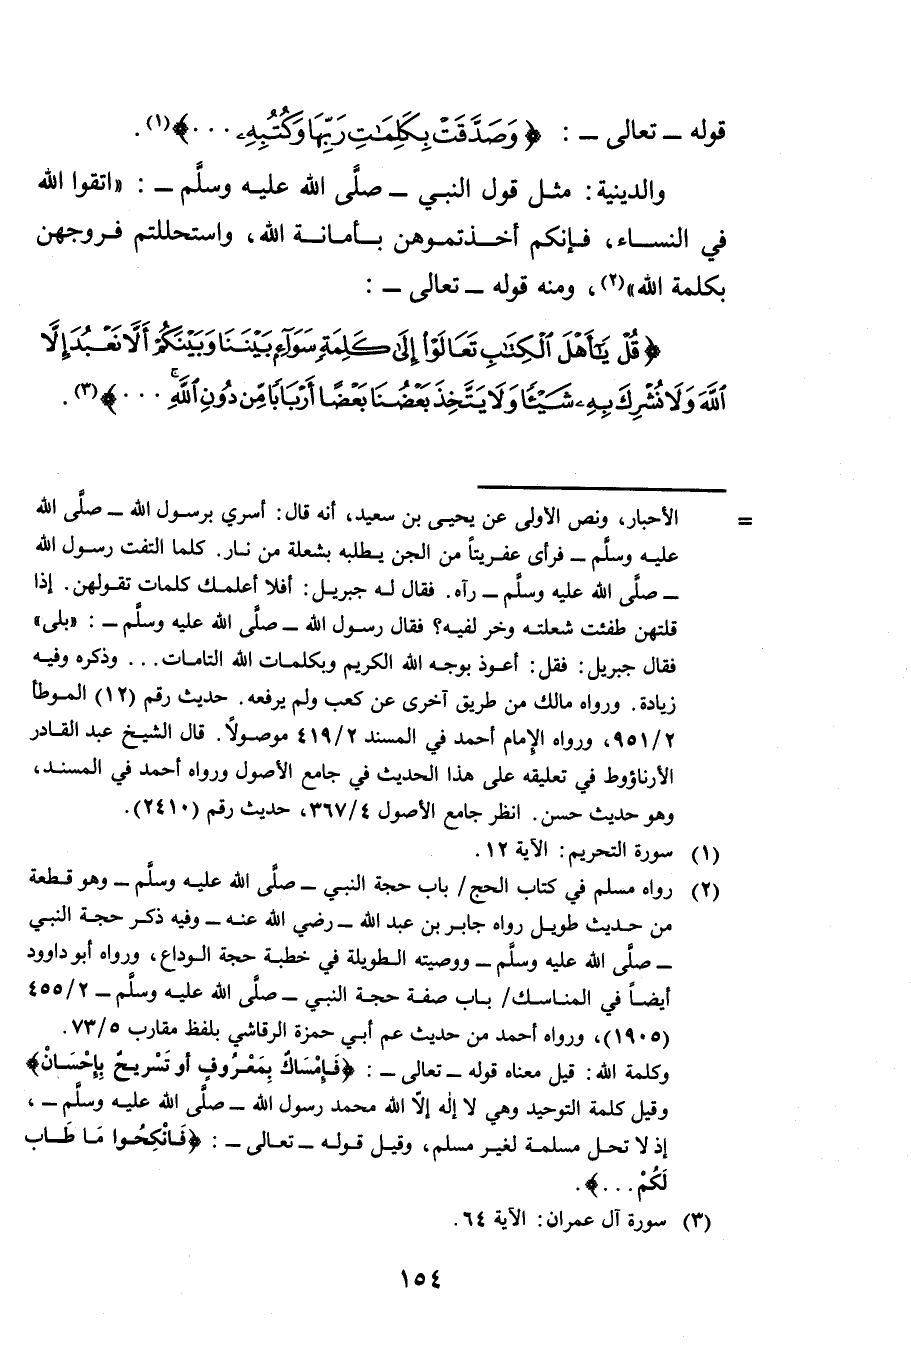 قوله ــ تعالى ــ : ﴿ وَصَدَّقَتْ بِكَلِمَٰتِ رَبِّهَا وَكُتُبِهِۦ . . . ﴾(١) .
والدينية: مثل قول النبي ــ صلَّى الله عليه وسلَّم ــ : «اتقوا الله
في النساء، فإنكم أخذتموهن بأمانة الله، واستحللتم فروجهن
بكلمة الله»(٢)، ومنه قوله ــ تعالى ــ :
﴿ قُلْ يَٰٓأَهْلَ ٱلْكِتَٰبِ تَعَالَوْا۟ إِلَىٰ كَلِمَةٍ سَوَآءٍۭ بَيْنَنَا وَبَيْنَكُمْ أَلَّا نَعْبُدَ إِلَّا
ٱللَّهَ وَلَا نُشْرِكَ بِهِۦ شَيْـًٔا وَلَا يَتَّخِذَ بَعْضُنَا بَعْضًا أَرْبَابًا مِّن دُونِ ٱللَّهِ ۚ . . . ﴾(٣) .
= الأحبار، ونص الأولى عن يحيى بن سعيد، أنه قال: أسري برسول الله ــ صلَّى الله
عليه وسلَّم ــ فرأى عفريتاً من الجن يطلبه بشعلة من نار. كلما التفت رسول الله
ــ صلَّى الله عليه وسلَّم ــ رآه. فقال له جبريل: أفلا أعلمك كلمات تقولهن. إذا
قلتهن طفئت شعلته وخر لفيه؟ فقال رسول الله ــ صلَّى الله عليه وسلَّم ــ : «بلى»
فقال جبريل: فقل: أعوذ بوجه الله الكريم وبكلمات الله التامات... وذكره وفيه
زيادة. ورواه مالك من طريق آخرى عن كعب ولم يرفعه. حديث رقم (١٢) الموطأ
٩٥١/٢، ورواه الإمام أحمد في المسند ٤١٩/٢ موصولاً. قال الشيخ عبد القادر
الأرناؤوط في تعليقه على هذا الحديث في جامع الأصول ورواه أحمد في المسند،
وهو حديث حسن. انظر جامع الأصول ٣٦٧/٤، حديث رقم (٢٤١٠).
(١) سورة التحريم: الآية ١٢.
(٢) رواه مسلم في كتاب الحج/ باب حجة النبي ــ صلَّى الله عليه وسلَّم ــ وهو قطعة
من حديث طويل رواه جابر بن عبد الله ــ رضي الله عنه ــ وفيه ذكر حجة النبي
ــ صلَّى الله عليه وسلَّم ــ ووصيته الطويلة في خطبة حجة الوداع، ورواه أبو داوود
أيضاً في المناسك/ باب صفة حجة النبي ــ صلَّى الله عليه وسلَّم ــ ٤٥٥/٢
(١٩٠٥)، ورواه أحمد من حديث عم أبي حمزة الرقاشي بلفظ مقارب ٧٣/٥.
وكلمة الله: قيل معناه قوله ــ تعالى ــ : ﴿فَإِمْسَاكٌ بِمَعْرُوفٍ أو تَسْرِيحٌ بِإِحْسَانْ﴾
وقيل كلمة التوحيد وهي لا إلٰه إلاّ الله محمد رسول الله ــ صلَّى الله عليه وسلَّم ــ ،
إذ لا تحل مسلمة لغير مسلم، وقيل قوله ــ تعالى ــ : ﴿فَانْكِحُوا مَا طَاب
لَكُمْ...﴾.
(٣) سورة آل عمران: الآية ٦٤.
١٥٤